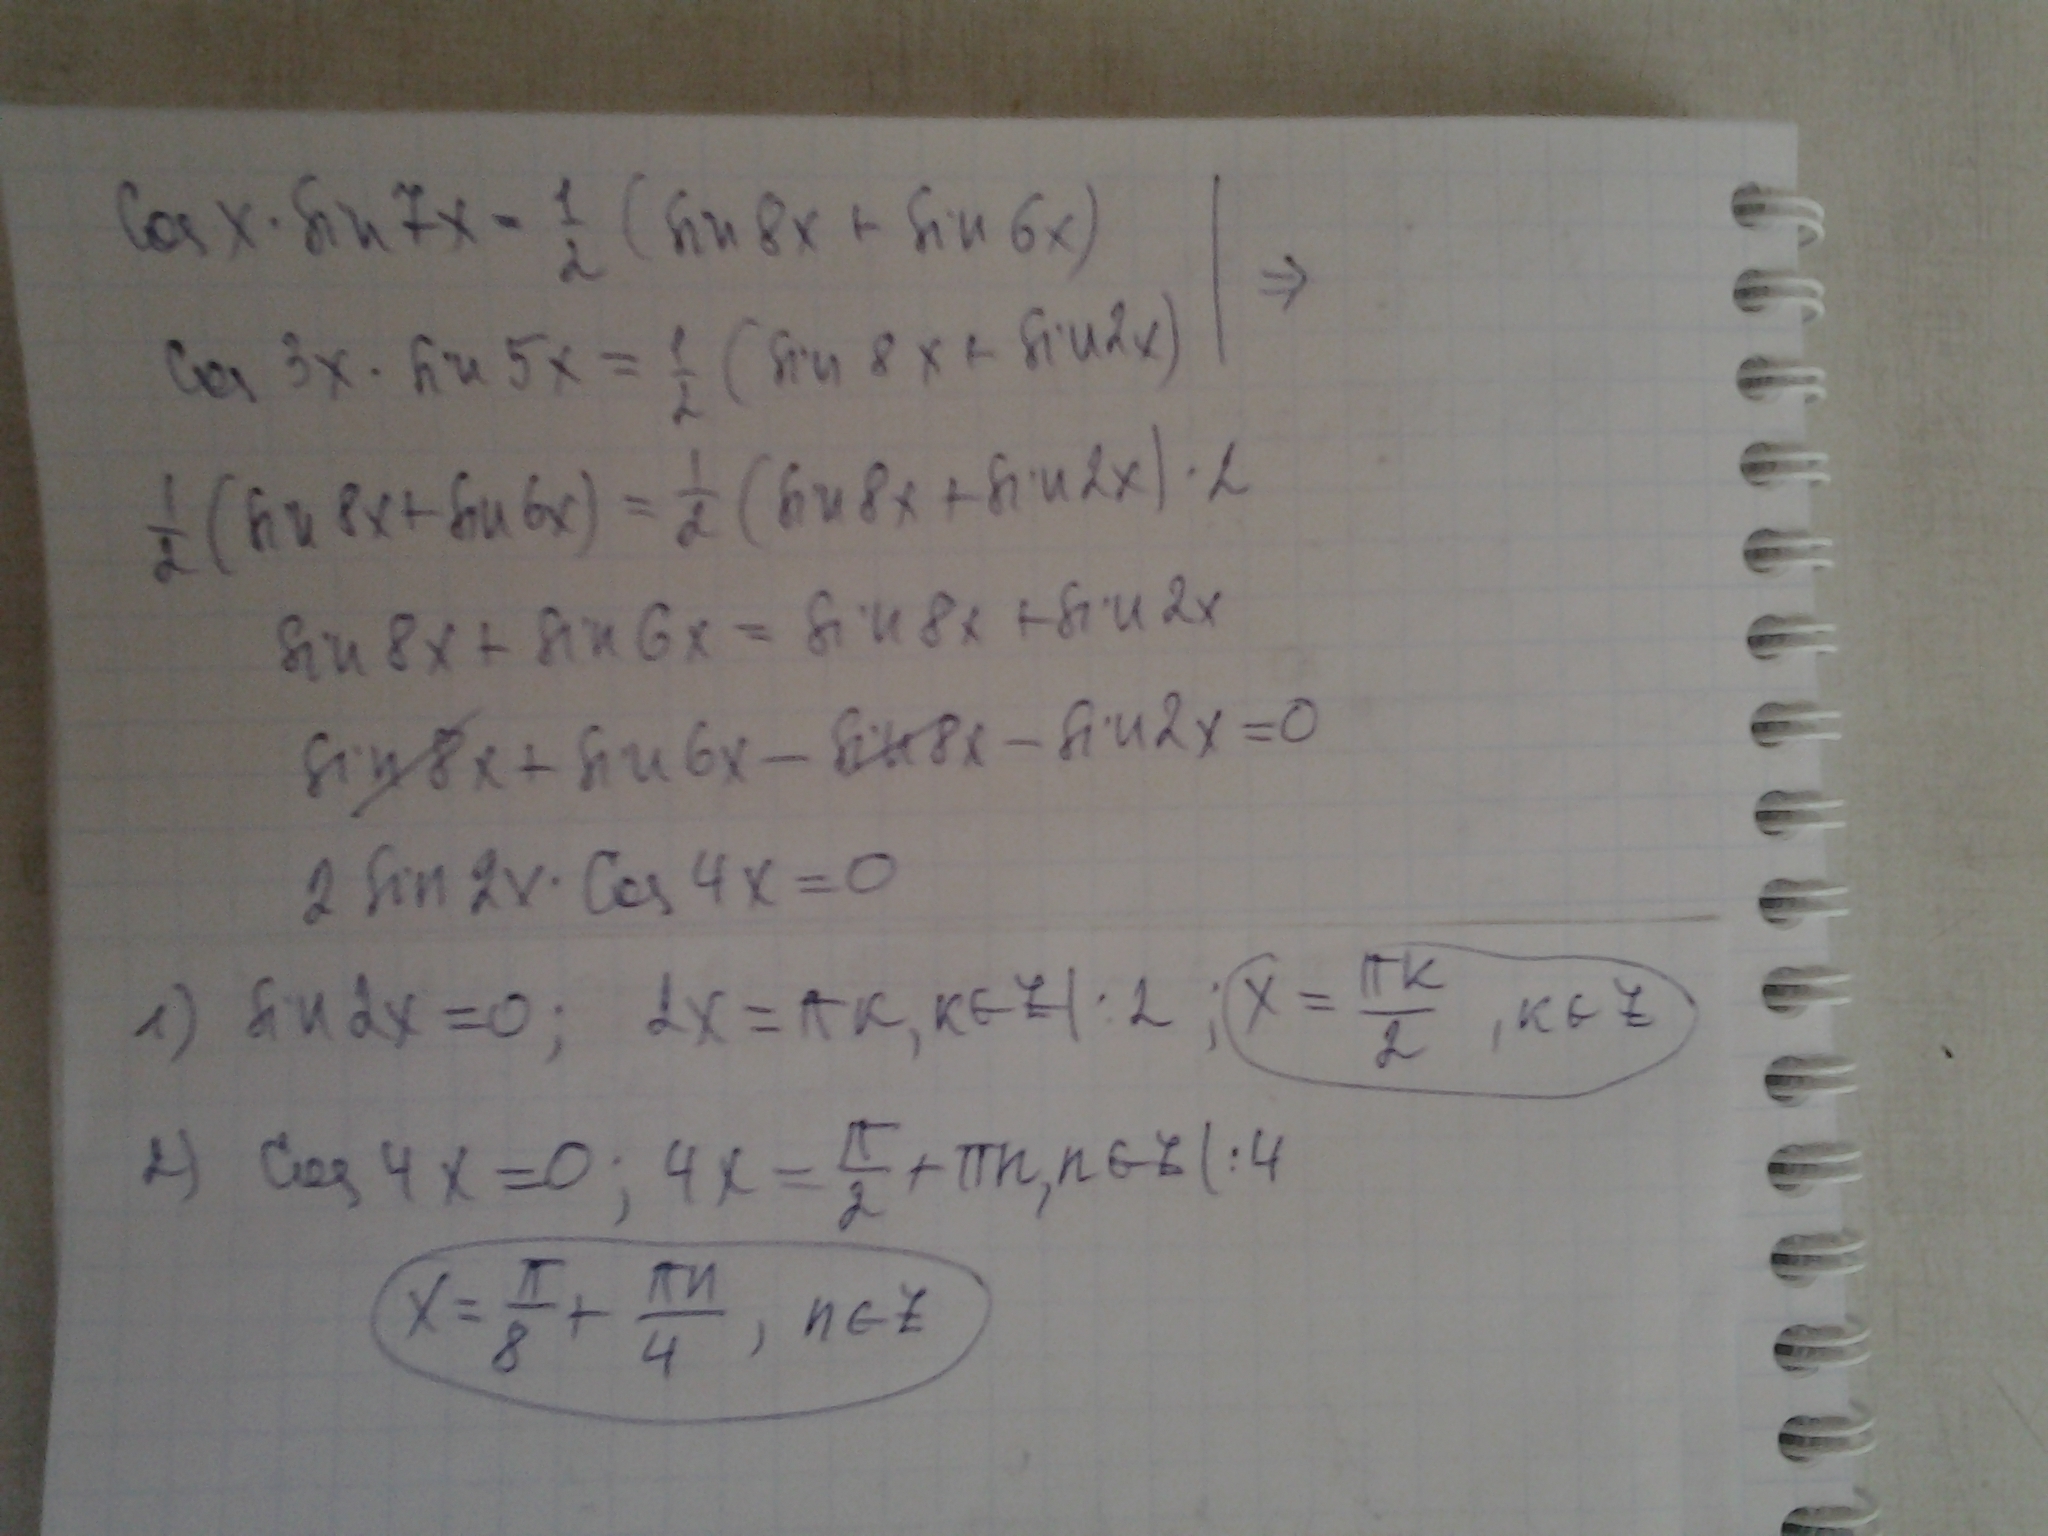 Cos x · Sin 7x = 1/2 (Sin 8x + Sin 6x) | ⇒
Cos 3x · Sin 5x = 1/2 (Sin 8x + Sin 2x)
1/2 (Sin 8x + Sin 6x) = 1/2 (Sin 8x + Sin 2x) | · 2
Sin 8x + Sin 6x = Sin 8x + Sin 2x
Sin 8x + Sin 6x − Sin 8x − Sin 2x = 0
2 Sin 2x · Cos 4x = 0
1) Sin 2x = 0; 2x = πk, k∈Z | : 2 ; x = πk/2 , k∈Z
2) Cos 4x = 0; 4x = π/2 + πn, n∈Z | : 4
x = π/8 + πn/4 , n∈Z